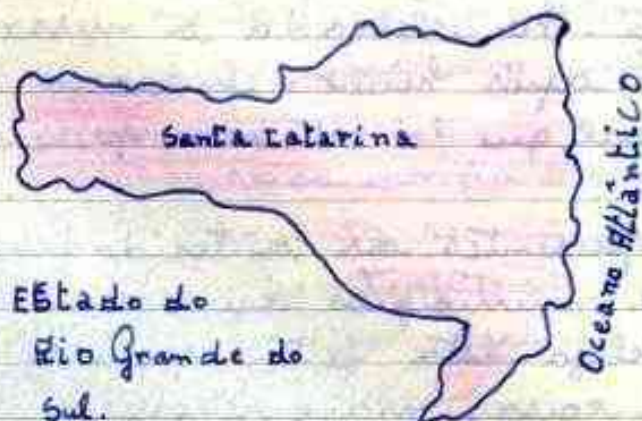 Santa Catarina
Oceano Atlântico
Estado do
Rio Grande do
Sul.